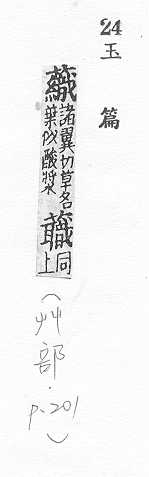 24 玉篇
諸翼切草名
葉似酸漿
蘵
同
上
(艸部. p.201)